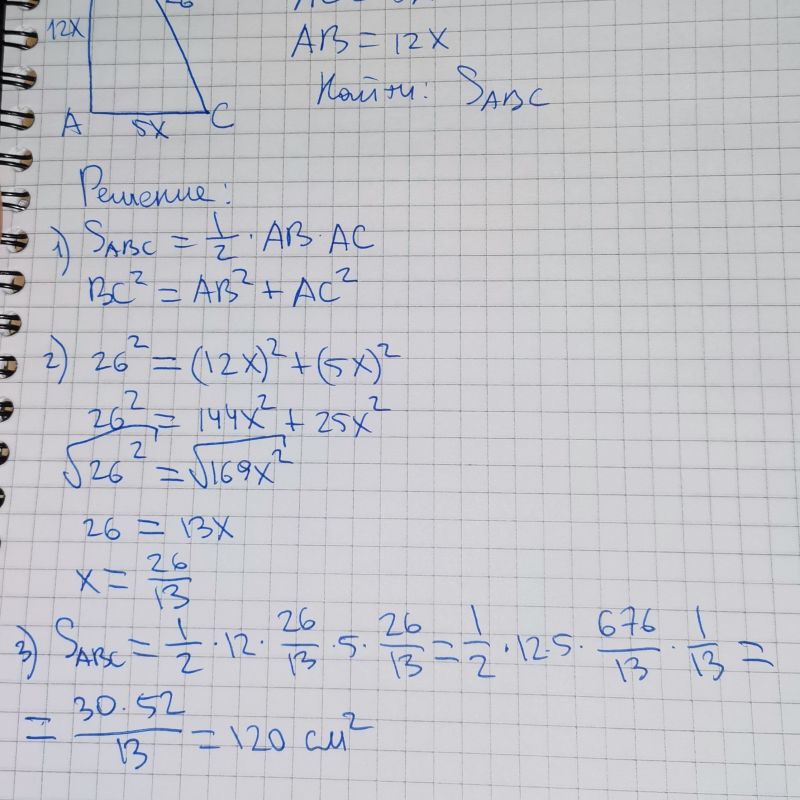 12x
AB = 12x
Найти: S_ABC
A 5x C
Решение:
1) S_ABC = 1/2 · AB · AC
BC² = AB² + AC²
2) 26² = (12x)² + (5x)²
26² = 144x² + 25x²
√26² = √169x²
26 = 13x
x = 26/13
3) S_ABC = 1/2 · 12 · 26/13 · 5 · 26/13 = 1/2 · 12·5 · 676/13 · 1/13 =
= 30·52/13 = 120 см²